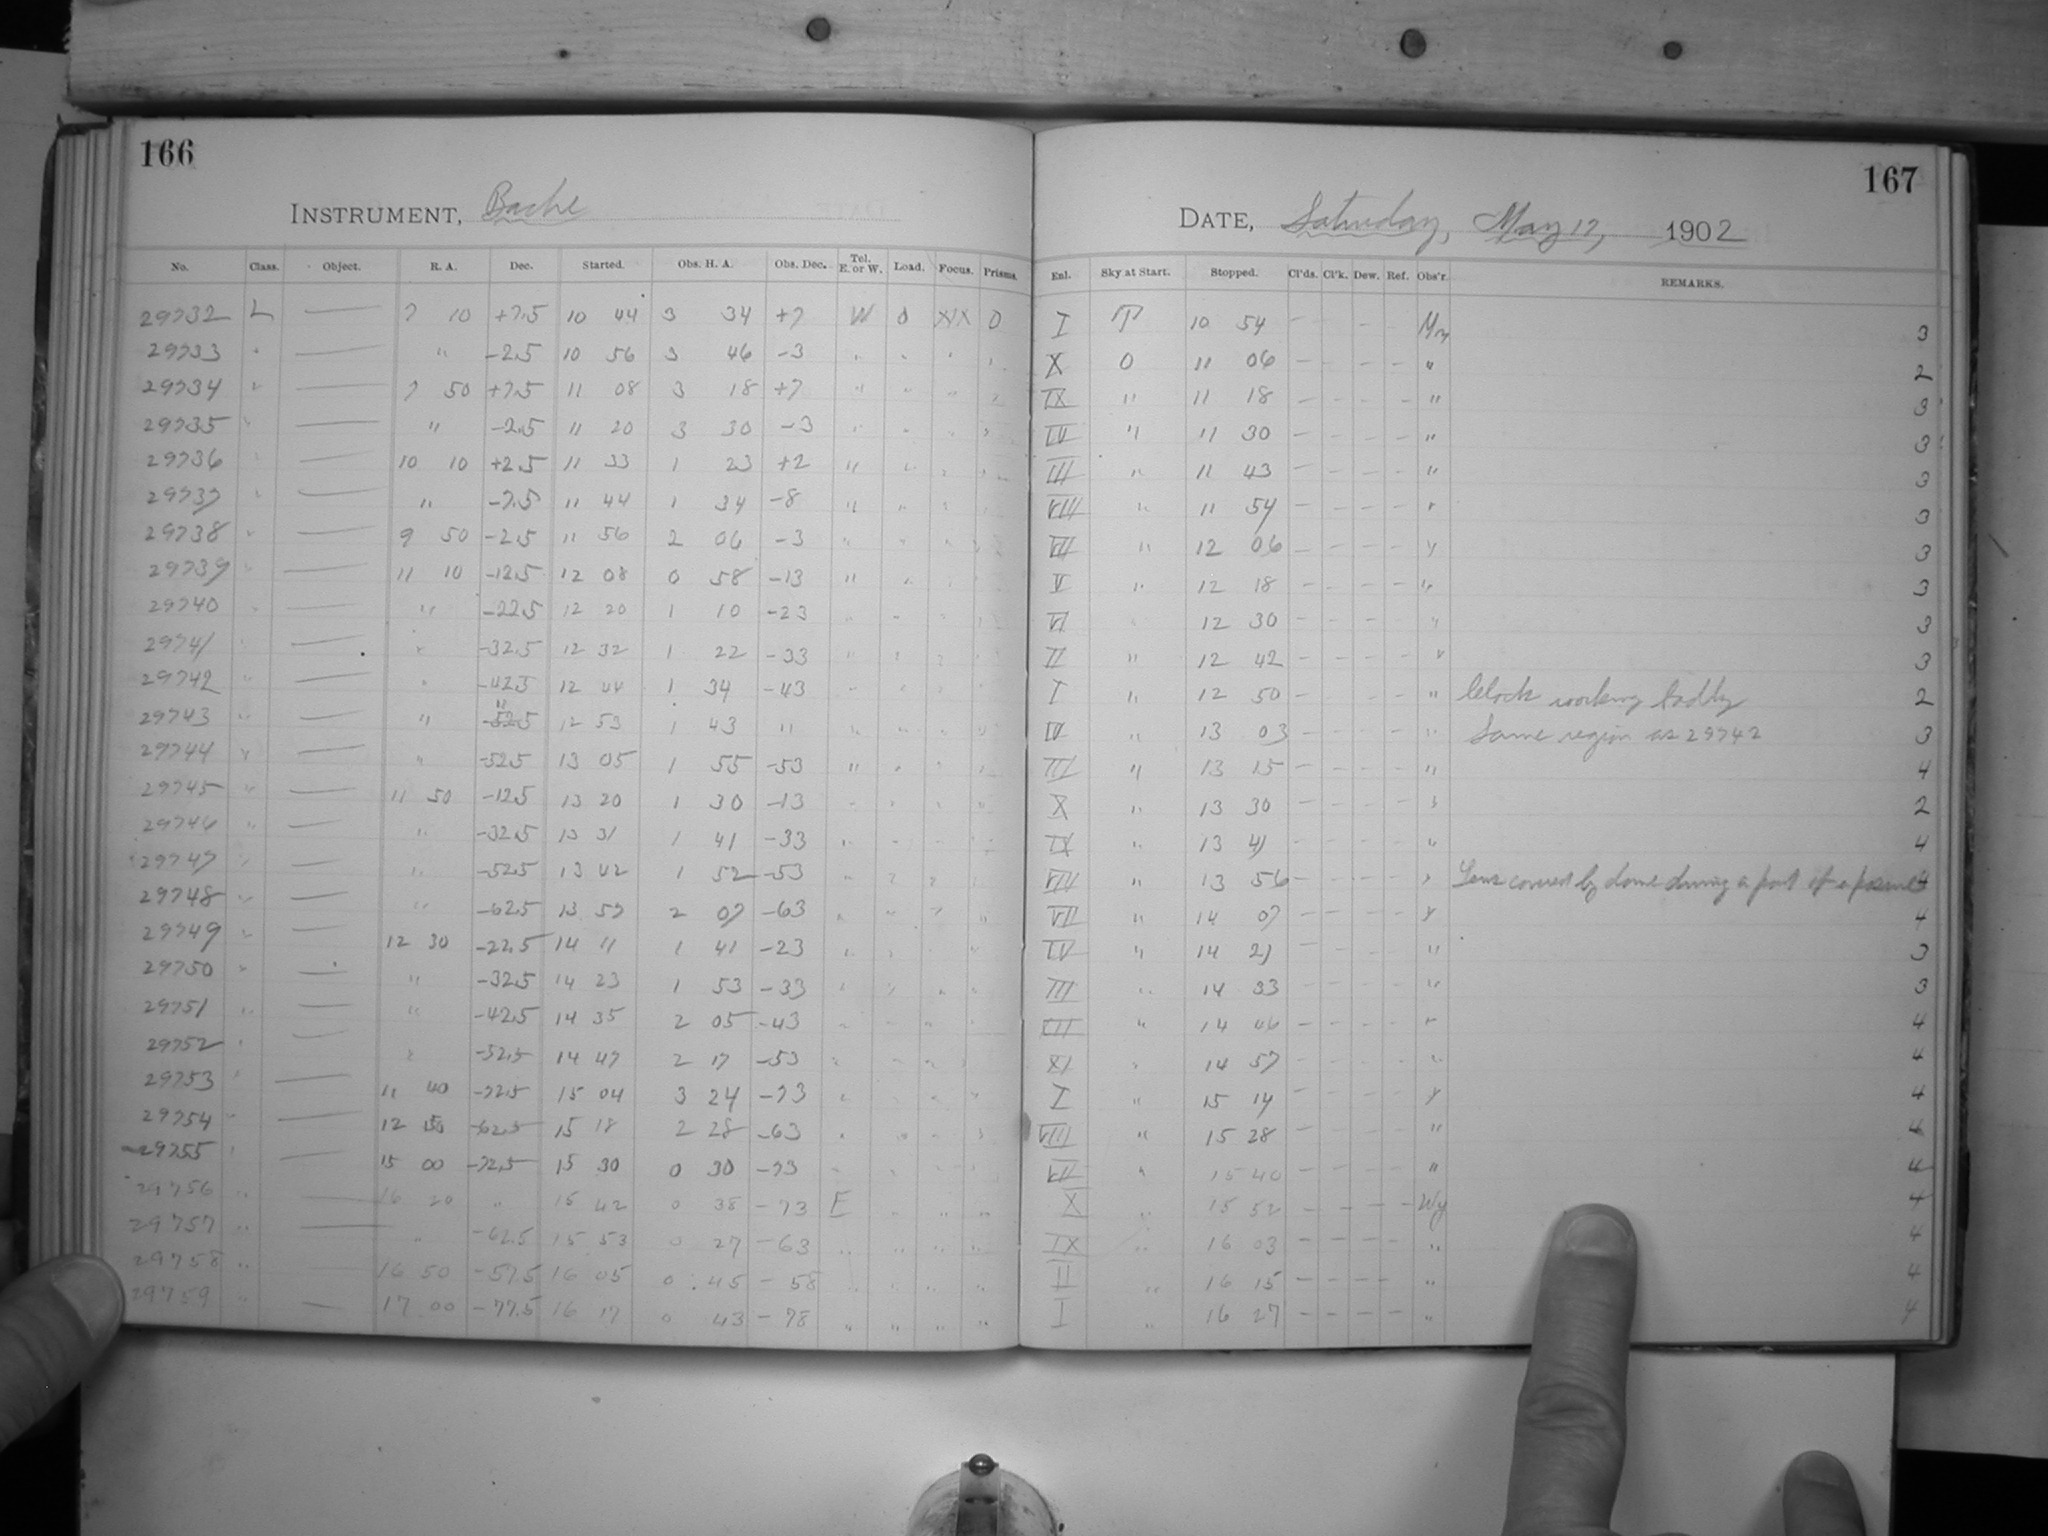 166
INSTRUMENT, Bache
No. Class. Object. R. A. Dec. Started. Obs. H. A. Obs. Dec. Tel. E. or W. Load. Focus. Prisms.
29732 L — 7 10 +7.5 10 44 3 34 +7 W 0 XIX 0
29733 " — " -2.5 10 56 3 46 -3 " " " "
29734 " — 7 50 +7.5 11 08 3 18 +7 " " " "
29735 " — " -2.5 11 20 3 30 -3 " " " "
29736 " — 10 10 +2.5 11 33 1 23 +2 " " " "
29737 " — " -7.5 11 44 1 34 -8 " " " "
29738 " — 9 50 -2.5 11 56 2 06 -3 " " " "
29739 " — 11 10 -12.5 12 08 0 58 -13 " " " "
29740 " — " -22.5 12 20 1 10 -23 " " " "
29741 " — " -32.5 12 32 1 22 -33 " " " "
29742 " — " -42.5 12 44 1 34 -43 " " " "
29743 " — " " 12 53 1 43 " " " " "
29744 " — " -52.5 13 05 1 55 -53 " " " "
29745 " — 11 50 -12.5 13 20 1 30 -13 " " " "
29746 " — " -32.5 13 31 1 41 -33 " " " "
29747 " — " -52.5 13 42 1 52 -53 " " " "
29748 " — " -62.5 13 57 2 07 -63 " " " "
29749 " — 12 30 -22.5 14 11 1 41 -23 " " " "
29750 " — " -32.5 14 23 1 53 -33 " " " "
29751 " — " -42.5 14 35 2 05 -43 " " " "
29752 " — " -52.5 14 47 2 17 -53 " " " "
29753 " — 11 40 -72.5 15 04 3 24 -73 " " " "
29754 " — 12 50 -62.5 15 18 2 28 -63 " " " "
29755 " — 15 00 -72.5 15 30 0 30 -73 " " " "
29756 " — 16 20 " 15 42 0 38 -73 E " " "
29757 " — " -62.5 15 53 0 27 -63 " " " "
29758 " 16 50 -57.5 16 05 0 45 -58 " " " "
29759 " — 17 00 -77.5 16 17 0 43 -78 " " " "
167
DATE, Saturday, May 17, 1902
Enl. Sky at Start. Stopped. Cl'ds. Cl'k. Dew. Ref. Obs'r. REMARKS.
I 10 54 — — — 3
X 0 11 06 — — — — " 2
IX " 11 18 — — — — " 3
IV " 11 30 — — — — " 3
III " 11 43 — — — — " 3
VIII " 11 54 — — — — " 3
VII " 12 06 — — — — " 3
V " 12 18 — — — — " 3
VI " 12 30 — — — — " 3
II " 12 42 — — — — " 3
I " 12 50 — — — — " Clock working badly 2
IV " 13 03 — — — — " Same region as 29742 3
III " 13 15 — — — — " 4
X " 13 30 — — — — " 2
IX " 13 41 — — — — " 4
VIII " 13 56 — — — — " Lens covered by dome during a part of exposure 4
VII " 14 07 — — — — " 4
IV " 14 21 — — — — " 3
III " 14 33 — — — — " 3
" 14 46 — — — — " 4
XI " 14 57 — — — — " 4
I " 15 14 — — — — " 4
VIII " 15 28 — — — — " 4
VII " 15 40 — — — — " 4
X " 15 52 — — — — Wy 4
IX " 16 03 — — — — " 4
II " 16 15 — — — — " 4
I " 16 27 — — — — " 4